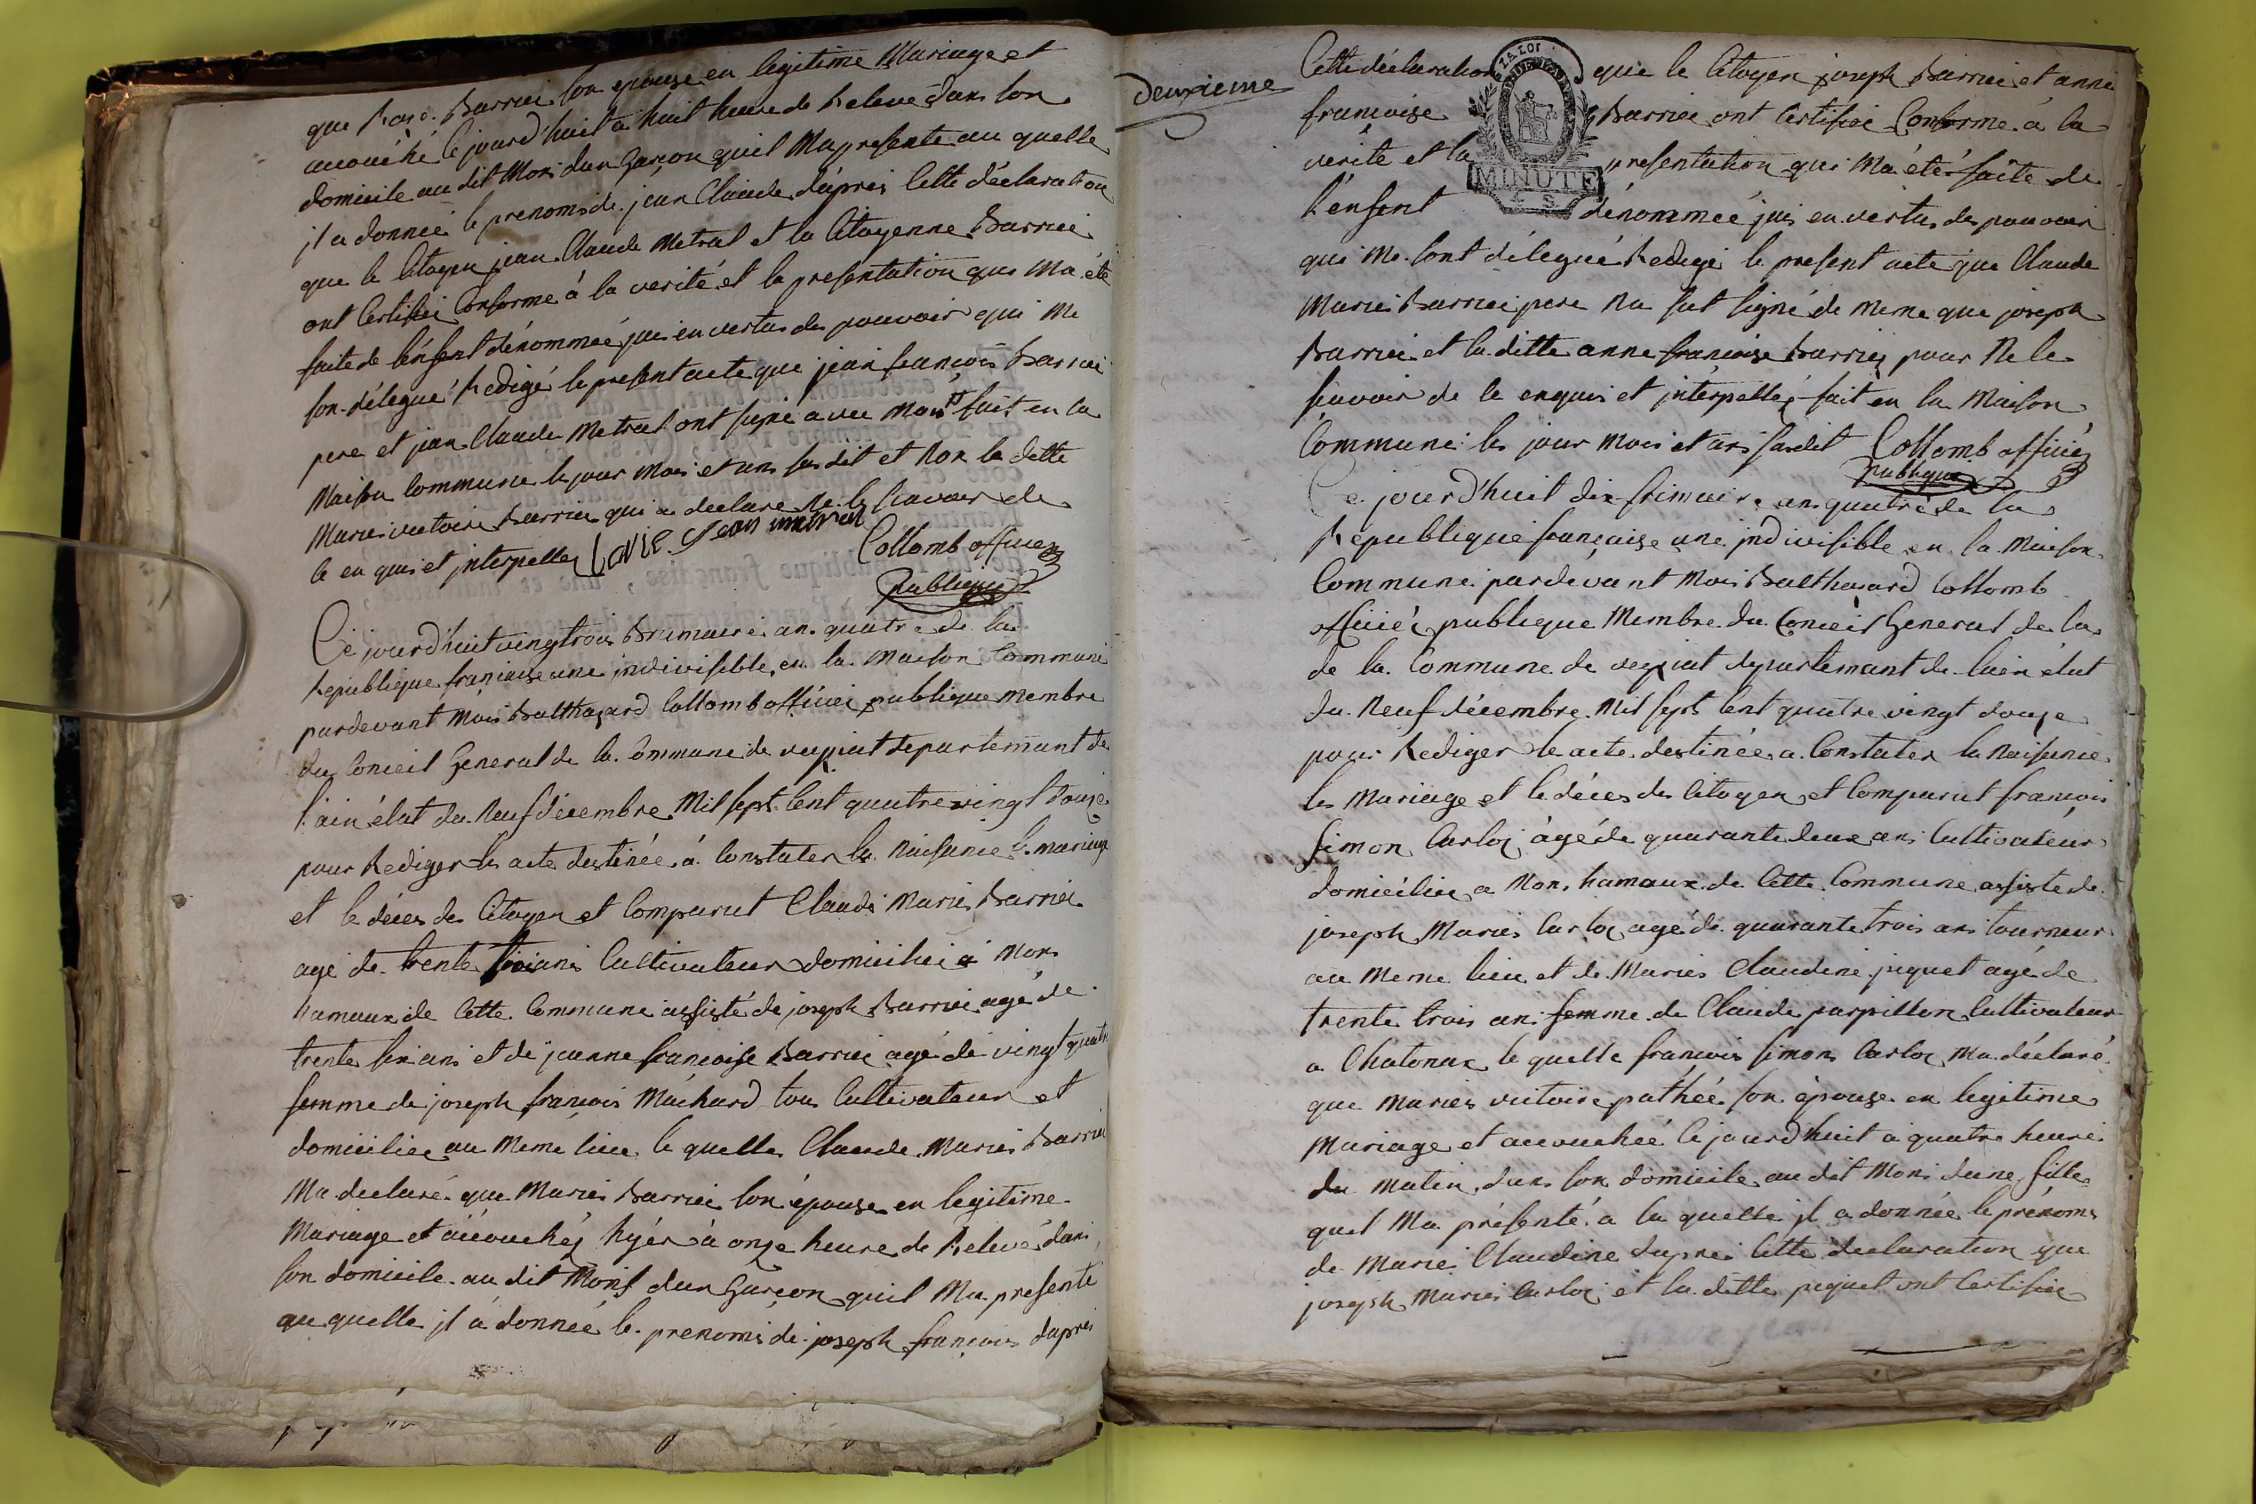 que Rose Barrier son epouse en legitime Mariage et
accouché ce jourd'huit a huit heure de Relevé dans son
domicile au dit Mons dun Garçon quil Ma presente au quelle
jl a donnée le prenoms de jean Claude daprés Cette déclaration
que le Citoyen jean Claude Metral et la Citoyenne Barrier
ont Certifiée Conforme à la verité et la presentation qui Ma été
faite de lénfent dénommée jais en vertus des pouvoir qui Me
son délegué Redigé le present acte que jean françois Barrier
pere et jean Claude Metral ont signé avec Mois fait en la
Maison Commune le jour Mois et ans susdit et Non la ditte
Marie victoire Barrier qui a declaré Ne le scavoir de
ce enquis et jnterpellé Jean metral
Collomb officier
publique
Ce jourd'huit vingtrois Brumaire an quatre de la
Republique française une jndivisible en la Maison Commune
pardevant Mois Balthazard Collomb officier publique Membre
du Conseil General de la Commune de departemant de
l'ain élut du Neuf décembre Mil sept Cent quatre vingt douze
pour Rediger les acte destinée à Constater la Naisance le mariage
et le décès des Citoyen et Comparut Claude Marie Barrier
agé de trente ans Cultivateur domicilié à Mons
hamaux de Cette Commune assisté de joseph Barrier agé de
trente six ans et de jeanne françoise Barrier agé de vingt quatre
femme de joseph françois Máchard tous Cultivateur et
domiciliée au Meme lieu le quelle Claude Marie Barrier
Ma declaré que Marie Barrier son épouse en legitime
Mariage et accouchéz hyér à onze heure de Relevé dans
son domicile au dit Mons dun Garçon quil Ma presenté
au quelle jl a donnée le prenoms de joseph françois daprés
deuxieme
Cette déclaration que le Citoyen joseph Barrier et anne
francoise Barrier ont Certifiée Conforme à la
verité et la presentation qui Ma été faite de
l'enfent dénommée jais en vertus des pouvoir
MINUTE
qui Me sont délegué Redigé le present acte que Claude
Marie Barrier pere Na sut signé de Meme que joseph
Barrier et la ditte anne francoise Barrier pour Ne le
scavoir de ce enquis et jnterpelléz fait en la Maison
Commune les jour Mois et ans susdit Collomb officiér
publique
Ce jourd'huit dix frimaire an quatre de la
Republique française une jndivisible en la Maison
Commune pardevant Mois Balthazard Collomb
officiér publique Membre du Conseil General de la
de la Commune de departemant de lain élut
du Neuf décembre Mil sept Cent quatre vingt douze
pour Rediger le acte destinée a Constater la Naisance
les Mariage et le décès des Citoyen et Comparut francois
simon Carloz àgé de quarante deux ans Cultivateur
domiciliée a Mons hamaux de Cette Commune assisté de
joseph Marie Carloz agé de quarante trois ans tourneur
au Meme lieu et de Marie Claudine piquet agé de
trente trois ans femme de Claude parpillon Cultivateur
a Chatonax le quelle francois simon Carloz Ma déclaré
que Marie victoire pathée son épouse en legitime
Mariage et accouchée ce jourd'huit a quatre heure
du matin dans son domicile au dit Mons dune fille
quil Ma présenté à la quelle jl a donnée le prénoms
de Marie Claudine daprés Cette declaration que
joseph Marie Carloz et la ditte piquet ont Certifiée